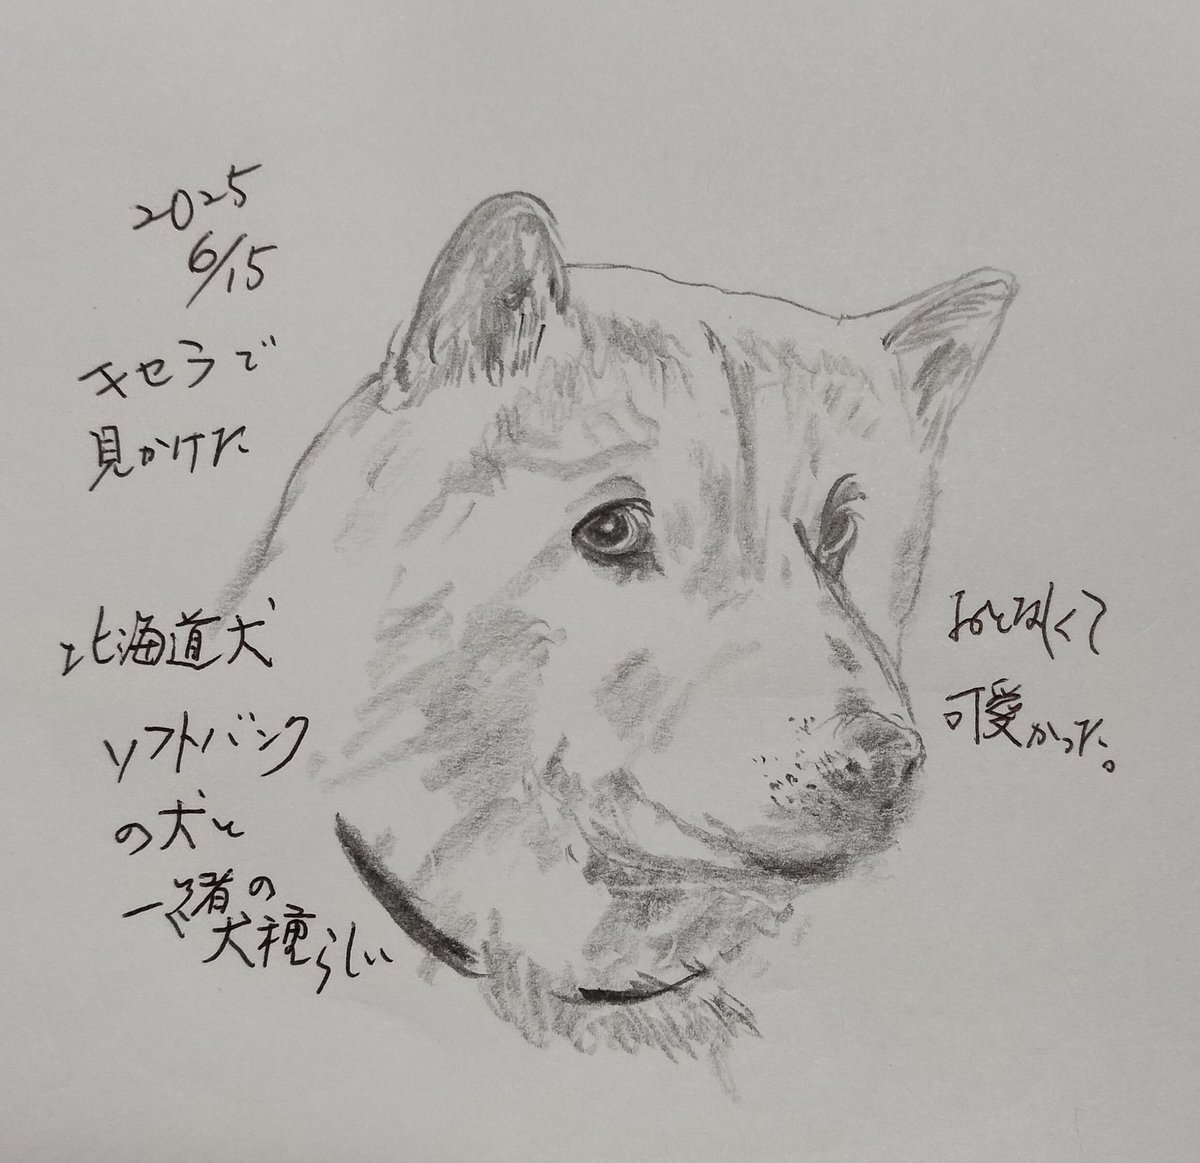 2025
6/15
キセラで
見かけた
北海道犬
ソフトバンク
の犬と
一緒の
犬種らしい
おとなしくて
可愛かった。